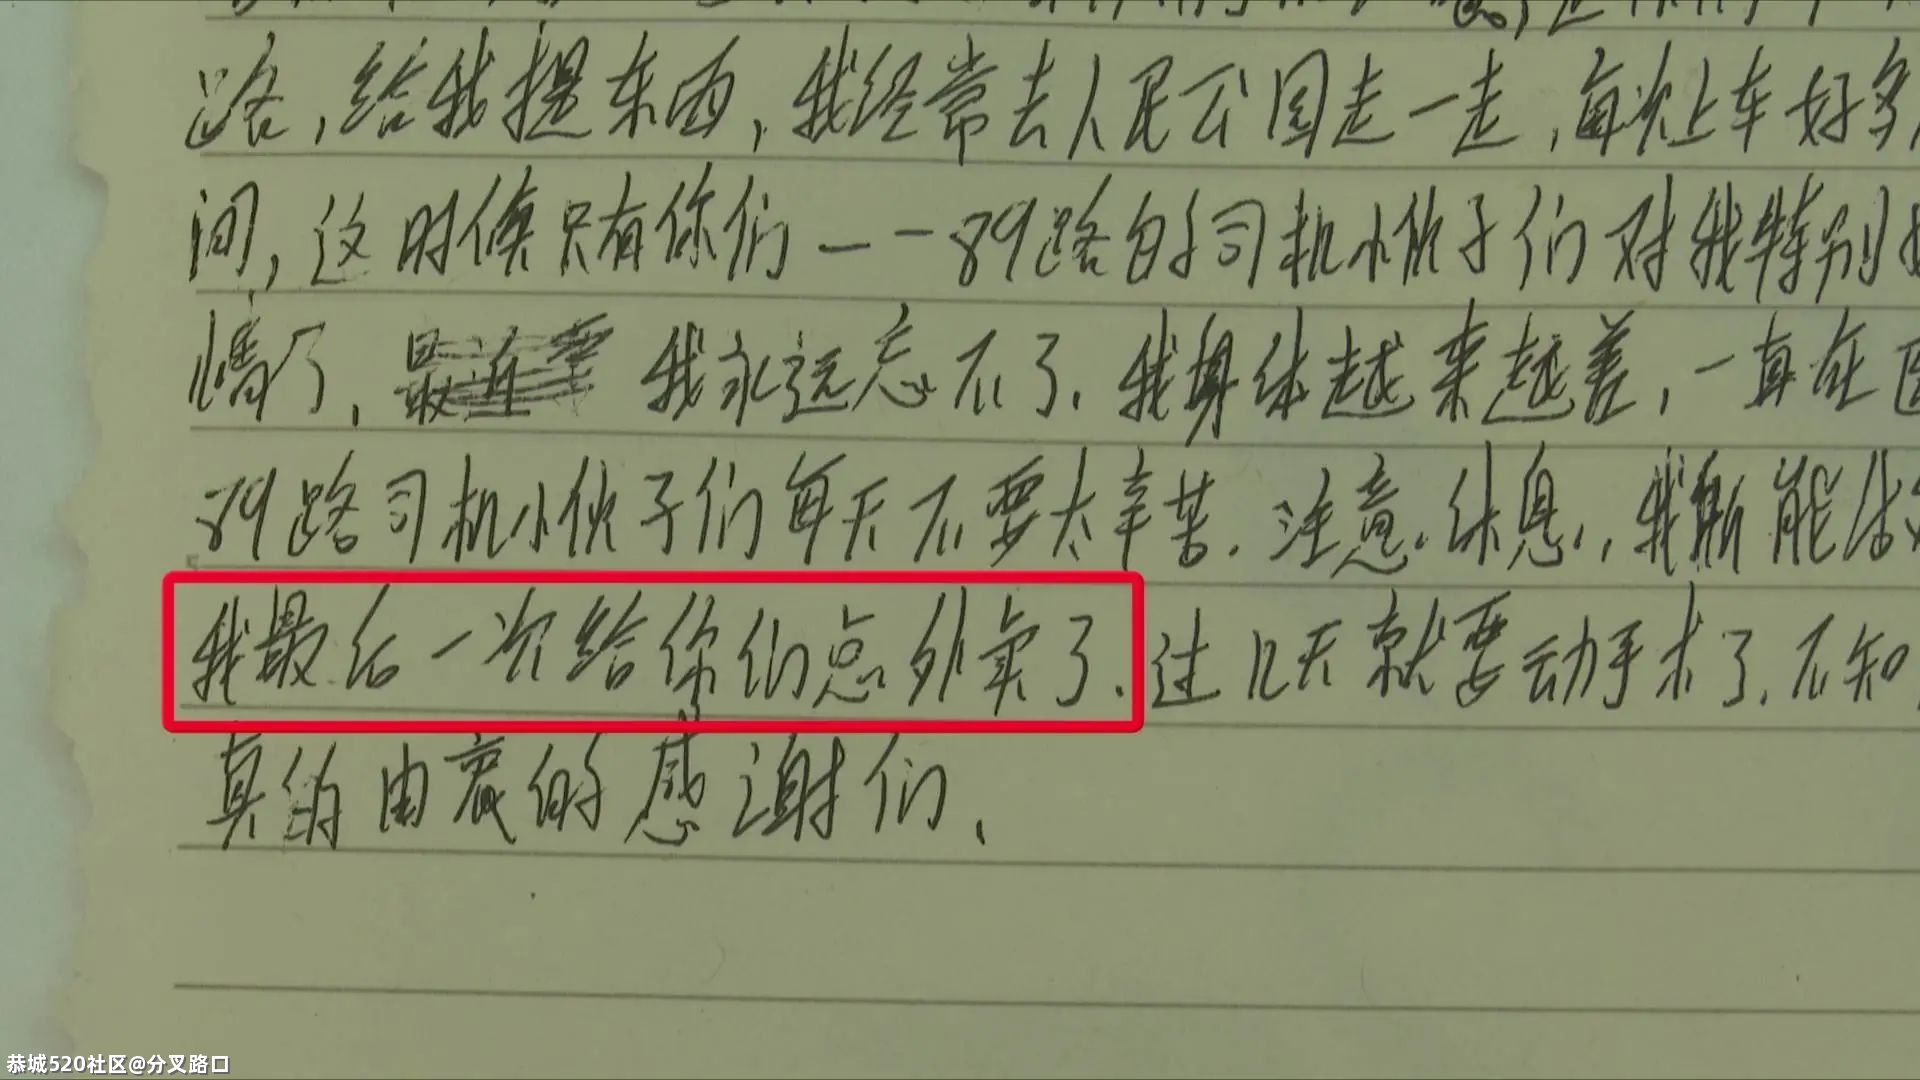 路,给我提东西,我经常去人民公园走一走,每次上车好多
间,这时候只有你们——89路的司机小伙子们对我特别
了, 我永远忘不了.我身体越来越差,一直在
89路司机小伙子们每天不要太辛苦.注意休息,我能
我最后一次给你们点外卖了.过几天就要动手术了.不知
真的由衷的感谢们、
恭城520社区@分叉路口